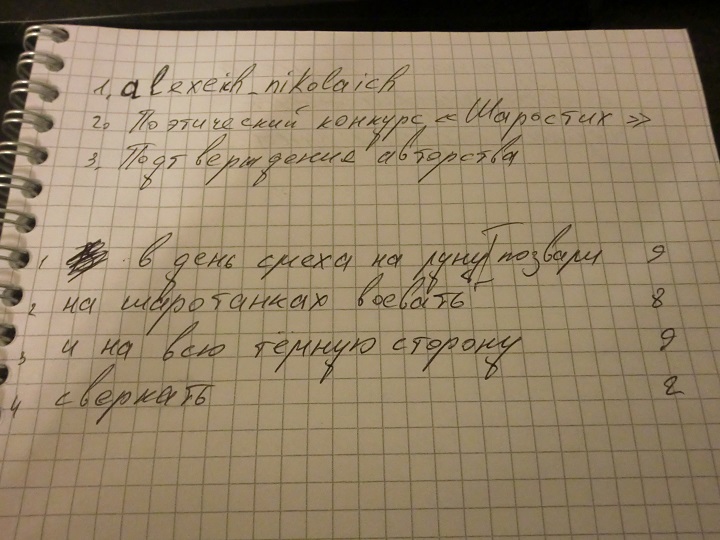 1. alexeih_nikolaich
2. Поэтический конкурс «Шаростих»
3. Подтверждение авторства
1 в день смеха на луну позвали 9
2 на шаротанках воевать 8
3 и на всю тёмную сторону 9
4 сверкать 2